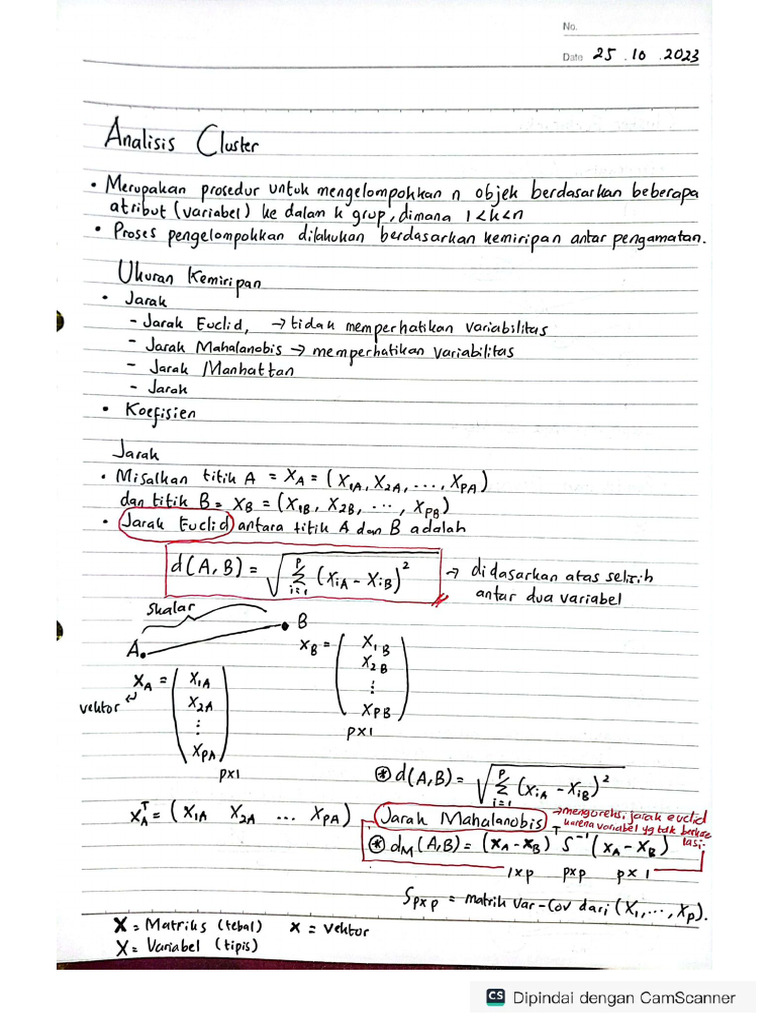 No.
Date 25 . 10 . 2023
Analisis Cluster
• Merupakan prosedur untuk mengelompokkan n objek berdasarkan beberapa
atribut (variabel) ke dalam k grup, dimana 1 < k < n
• Proses pengelompokkan dilakukan berdasarkan kemiripan antar pengamatan.
Ukuran Kemiripan
• Jarak
- Jarak Euclid, → tidak memperhatikan variabilitas
- Jarak Mahalanobis → memperhatikan variabilitas
- Jarak Manhattan
- Jarak
• Koefisien
Jarak
• Misalkan titik A = X_A = (X_1A, X_2A, ..., X_pA)
dan titik B = X_B = (X_1B, X_2B, ..., X_pB)
• Jarak Euclid antara titik A dan B adalah
d(A, B) = √(Σ_{i=1}^{p} (X_iA − X_iB)²) → didasarkan atas selisih
antar dua variabel
skalar
A. B
X_B = (X_1B
X_2B
⋮
X_pB)
p×1
X_A = (X_1A
vektor X_2A
⋮
X_pA)
p×1
⊛ d(A,B) = √(Σ_{i=1}^{p} (X_iA − X_iB)²)
X_A^T = (X_1A X_2A ... X_pA)
Jarak Mahalanobis → mengoreksi jarak euclid
karena variabel yg tdk berkorelasi.
⊛ d_M(A,B) = (X_A − X_B)^T S^{-1} (X_A − X_B)
1×p p×p p×1
S_p×p = matrik var-cov dari (X_1, ..., X_p).
X = Matriks (tebal) x = vektor
X = Variabel (tipis)
CS Dipindai dengan CamScanner